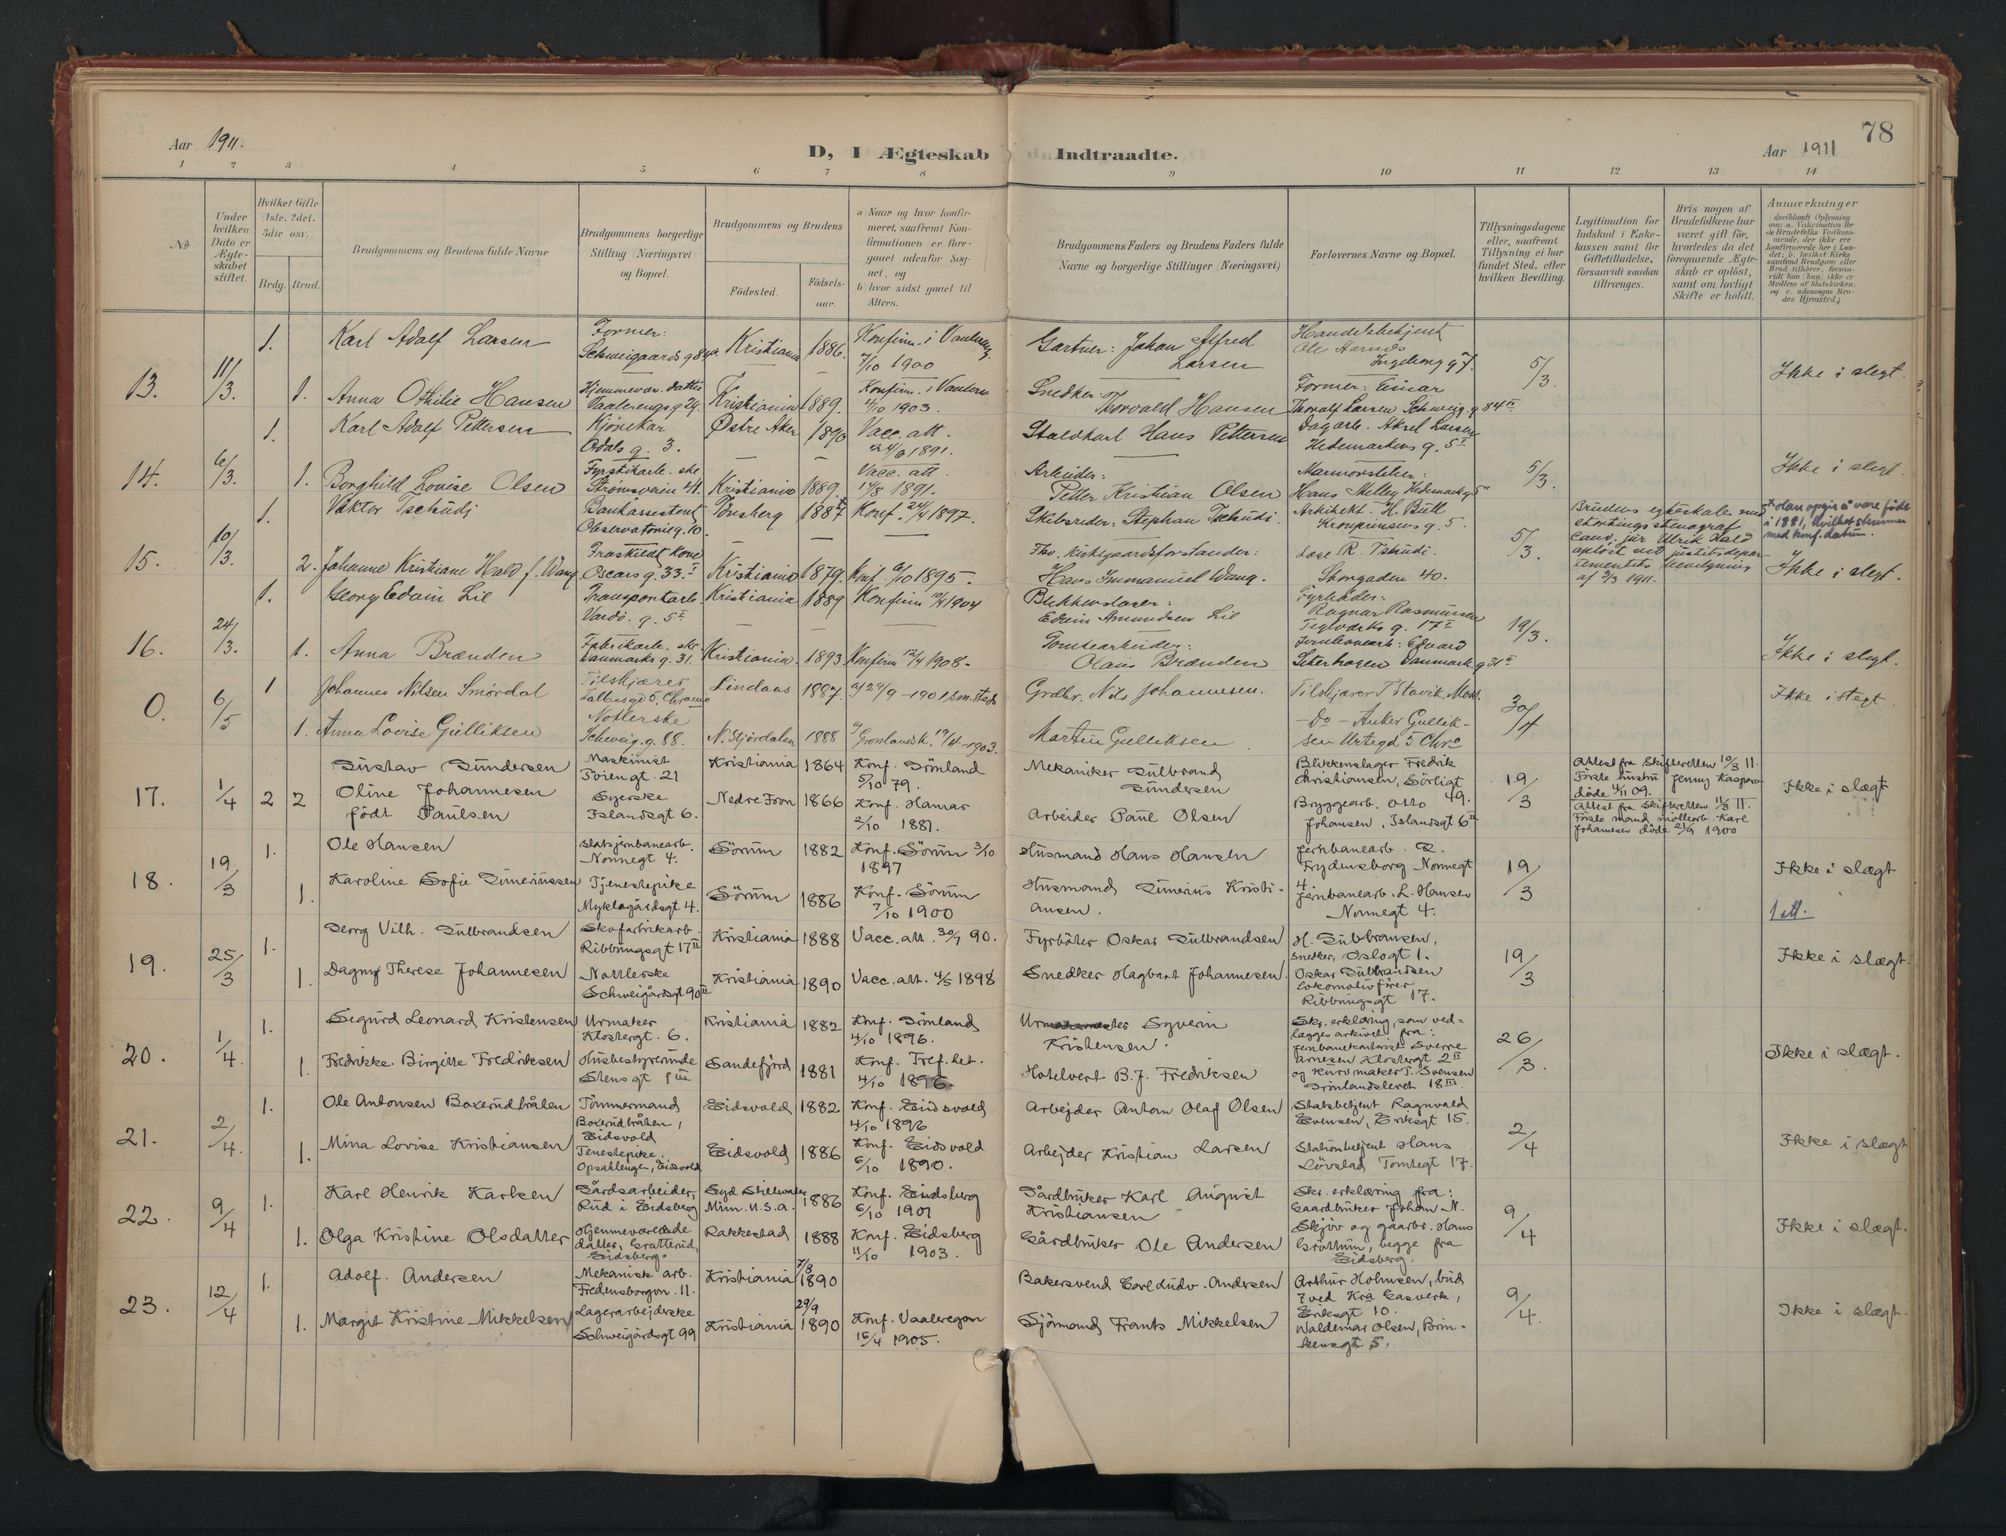 78
Aar 1911.
D, I Ægteskab Indtraadte.
Aar 1911
1 2 3 4 5 6 7 8 9 10 11 12 13 14
No
Under hvilken Dato er Ægteskabet stiftet.
Hvilket Gifte (1ste, 2det, 3die osv.
Brdg. Brud.
Brudgommens og Brudens fulde Navne
Brudgommens borgerlige Stilling (Næringsvei) og Bopæl.
Brudgommens og Brudens
Födested.
Födselsaar.
a) Naar og hvor konfirmeret, saafremt Konfirmationen er foregaaet udenfor Sognet, og
b) hvor sidst gaaet til Alters.
Brudgommens Faders og Brudens Faders fulde Navne og borgerlige Stillinger (Næringsvei)
Forlovernes Navne og Bopæl.
Tillysningsdagene eller, saafremt Tillysning ei har fundet Sted, efter hvilken Bevilling.
Legitimation for Indskud i Enkekassen samt for Giftetilladelse, forsaavidt saadan tiltrænges.
Hvis nogen af Brudefolkene har været gift før, hvorledes da det foregaaende Ægteskab er oplöst, samt om lovligt Skifte er holdt.
Anmerkninger
13. 11/3 1. Karl Adolf Larsen Former: Schweigaards g 84 Kristiania 1886. Konfirm. i Vaalereng 7/10 1900 Gartner: Johan Alfred Larsen Handelsbetjent Ole Ingeborg g 7. 5/3 Ikke i slegt.
1. Anna Othilie Hansen Hjemmevær. datter Vaalerengs g 29. Kristiania 1889. Konfirm. i Vaaleren 4/10 1903. Snedker: Thorvald Hansen Former: Einar Thoralf Larsen Schweig. g 84 II
14. 6/3 1. Karl Adolf Pettersen Kjörekar Odals g. 3. Østre Aker 1890 Vacc. att. 24/6 1891. Staldkarl Hans Pettersen Dagarb. Aksel Larsen Hedemarkens g. 5 I 5/3. Ikke i slegt.
1. Borghild Lovise Olsen Fyrstikarb. ske Strömsveien 41. Kristiania 1889. Vacc. att. 14/8 1891. Arbeider: Petter Kristian Olsen Hans Melby Hedemark g 5
15. 10/3. 1. Viktor Tschudi Bankassestent Observatorieg. 10. Tönsberg 1887 Konf. 24/4 1897. Skibsreder: Stephan Tschudi. Arkitekt H. Bull Kronprinsens g. 5. 5/3. Brudens egteskab med stortingsstenograf Cand. jur Ulrik Hald oplöst ved justitsdepartementets bevilgning af 3/3 1911. * Han opgir å være född i 1881, hvilket stemmer med konf. datum. Ikke i slegt.
2. Johanne Kristiane Hald f. Wang Fraskildt kone Oscars g. 33. I Kristiania 1879. Konf. 6/10 1895. Thv. kirkegaardsforstander: Hans Immanuel Wang. Læge R. Tschudi. Storgaden 40.
16. 24/3. 1. Georg Edvin Lie Transportarb. Vardö. g. 5 II Kristiania 1889 Konfirm 1904 Blikkenslager: Edvin Amundsen Lie Fyrböder: Ragnar Rasmussen Teglverks g. 17 I 19/3. Ikke i slegt.
1. Anna Brænden Fabrikarb. ske. Danmarks g. 31. Kristiania 1893 Konfirm 1908. Tomtearbeider: Olaus Brænden Jernbanearb: Edvard Seterhagen Danmark g 31 II
0. 6/5 1 Johannes Nilsen Smördal Tilskjærer 5, Chrania Lindaas 1887. a) 29/9 - 1901 sm. steds Grdbr. Nils Johannesen. Tilskjærer T Stavik, Moss. 30/4 Ikke i slegt.
1. Anna Lovise Gulliksen Schweig. g. 88. N. Stjördalen 1888 a) Grønlandsk. 19/4 - 1903. Martin Gulliksen. - Do - Anker Gulliksen Urtegd 5 Chra
17. 1/4 2 Gustav Gundersen Maskinist Töiengt. 21 Kristiania 1864 Konf. Grönland 5/10 79. Mekaniker Gulbrand Gundersen Blikkenslager Fredrik Christiansen, Sörligt 49. 19/3 Attest fra Skifteretten 10/3 11. Förste hustru Jenny Kaspara döde 4/11 09. Ikke i slægt
2 Oline Johannesen födt Paulsen Syerske Islandsgt 6. Nedre Foss 1866 Konf. Hamar 2/10 1881. Arbeider Paul Olsen Bryggearb. Otto Johansen, Islandsgt 6 II Attest fra Skifteretten 11/3 11. Förste mand möllearb. Karl Johannesen döde 21/9 1900
18. 19/3 1. Ole Hansen Statsjernbanearb. Normegt 4. Sörum 1882 Konf. Sörum 3/10 1897 Husmand Hans Hansen Jernbanearb. Frydensborg Normegt 4. 19/3 Ikke i slægt
1. Karoline Sofie Simeniussen Tjenestepike Myklegårdsgt 4. Sörum 1886 Konf. Sörum 7/10 1900 Husmand Simenius Kristiansen. Jernbanearb. L. Hansen Normegt 4. 1 att.
19. 25/3 1. Georg Vilh. Gulbrandsen Skofabrikarb. Ribbungsgt 17 III Kristiania 1888 Vacc. att. 30/7 90. Fyrböter Oskar Gulbrandsen H. Gulbransen, snedker, Oslogt 1. 19/3 Ikke i slægt.
1. Dagny Therese Johannesen Nottlerske Schweigårdsgt 90 II Kristiania 1890 Vacc. att. 4/5 1898 Snedker Hagbart Johannesen Oskar Gulbrandsen lokomotivfører Ribbungsgt 17.
20. 1/4 1. Sigurd Leonard Kristensen Urmaker Klostergt. 6. Kristiania 1882 Konf. Grönland 4/10 1896. Syverin Kristensen. Skr. erklæring, som vedlægges arkivet fra: Jernbanekontorist Sverre Arnesen Klostergt 2 II 26/3. Ikke i slægt.
1. Fredrikke Birgitte Fredriksen Husbestyrerinde Stensgt 1 III Sandefjord 1881 Konf. Tref. het. 4/10 1896. Hotelvert B. J. Fredriksen og kurvmaker T. Svensen Grönlandsleret 18 III
21. 2/4. 1. Ole Antonsen Boxerudbråten Tömmermand Boxerudbråten, Eidsvold Eidsvold 1882 Konf. Eidsvold 4/10 1896 Arbejder Anton Olaf Olsen Statsbetjent Ragnvald Evensen, Eriksgt 15. 2/4 Ikke i slægt
1. Mina Lovise Kristiansen Tenestepike Opsahlengen, Eidsvold Eidsvold 1886 Konf. Eidsvold 6/10 1890. Arbejder Kristian Larsen Stationsbetjent Hans Lövstad Tomtegt 17.
22. 9/4 1. Karl Henrik Karlsen Gårdsarbeider, Rud i Eidsberg Syd Stillwater Minn. U.S.A. 1886 Konf. Eidsberg 6/10 1901 Gårdbruker Karl August Kristiansen Skr. erklæring fra: Gaardbruker Johan N. Skjör og gaarbr. Hans Gröttum, begge fra Eidsberg. 9/4 Ikke i slægt.
1. Olga Kristine Olsdatter Hjemmeværende datter, Grutterud, Eidsberg. Rakkestad 1888 Konf. Eidsberg 11/10 1903. Gårdbruker Ole Andersen
23. 12/4 1. Adolf Andersen Mekanisk arb. Fredensborgvn. 11. Kristiania 7/8 1890 Bakersvend Carl Ludv. Andersen Arthur Holmsen, bud ved Kra Gasverk, Eriksgt 10. 9/4. Ikke i slægt.
1. Margit Kristine Mikkelsen Lagerarbejderske Schweigårdsgt 99 Kristiania 29/9 1890 Konf. Vaalregen 15/4 1905. Sjömand Frants Mikkelsen Waldemar Olsen, Brinkensgt 5.